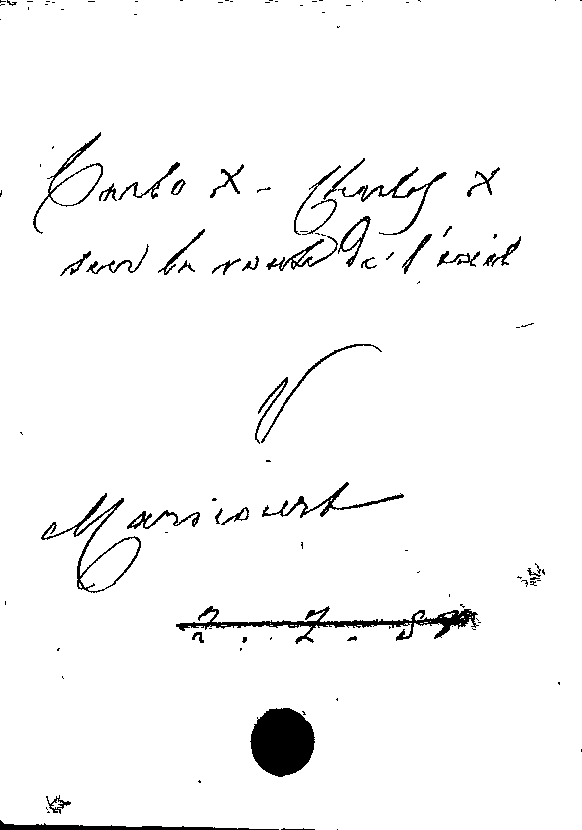 Carlo X - Charles X
sur la route de l'exil
V
Maricourt